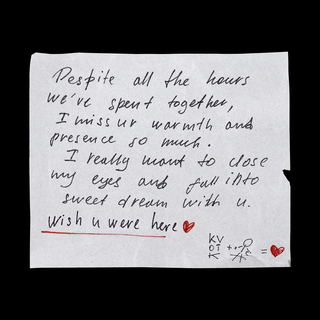 Despite all the hours
we've spent together,
I miss ur warmth and
presence so much.
I really want to close
my eyes and fall into
sweet dream with u.
wish u were here ❤
KV
OT
K + = ❤